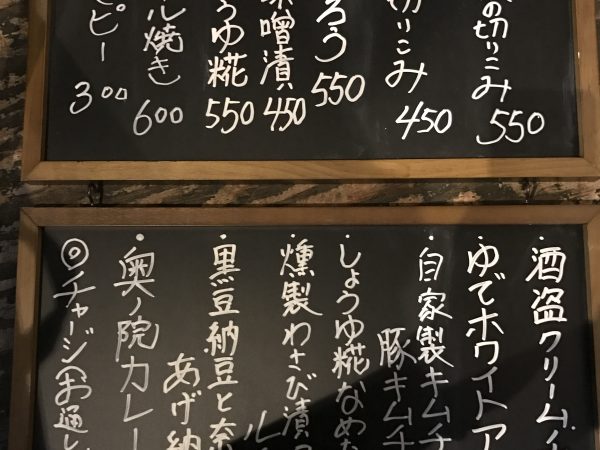 の切りこみ 550
切りこみ 450
ろう 550
味噌漬 450
うゆ糀 550
ル焼き 600
ピー 300
・酒盗クリーム
・ゆでホワイトア
・自家製キムチ
豚キムチ
・しょうゆ糀なめた
・燻製わさび漬
・黒豆納豆と奈
あげ納
・奥ノ院カレー
◎チャージ(お通し